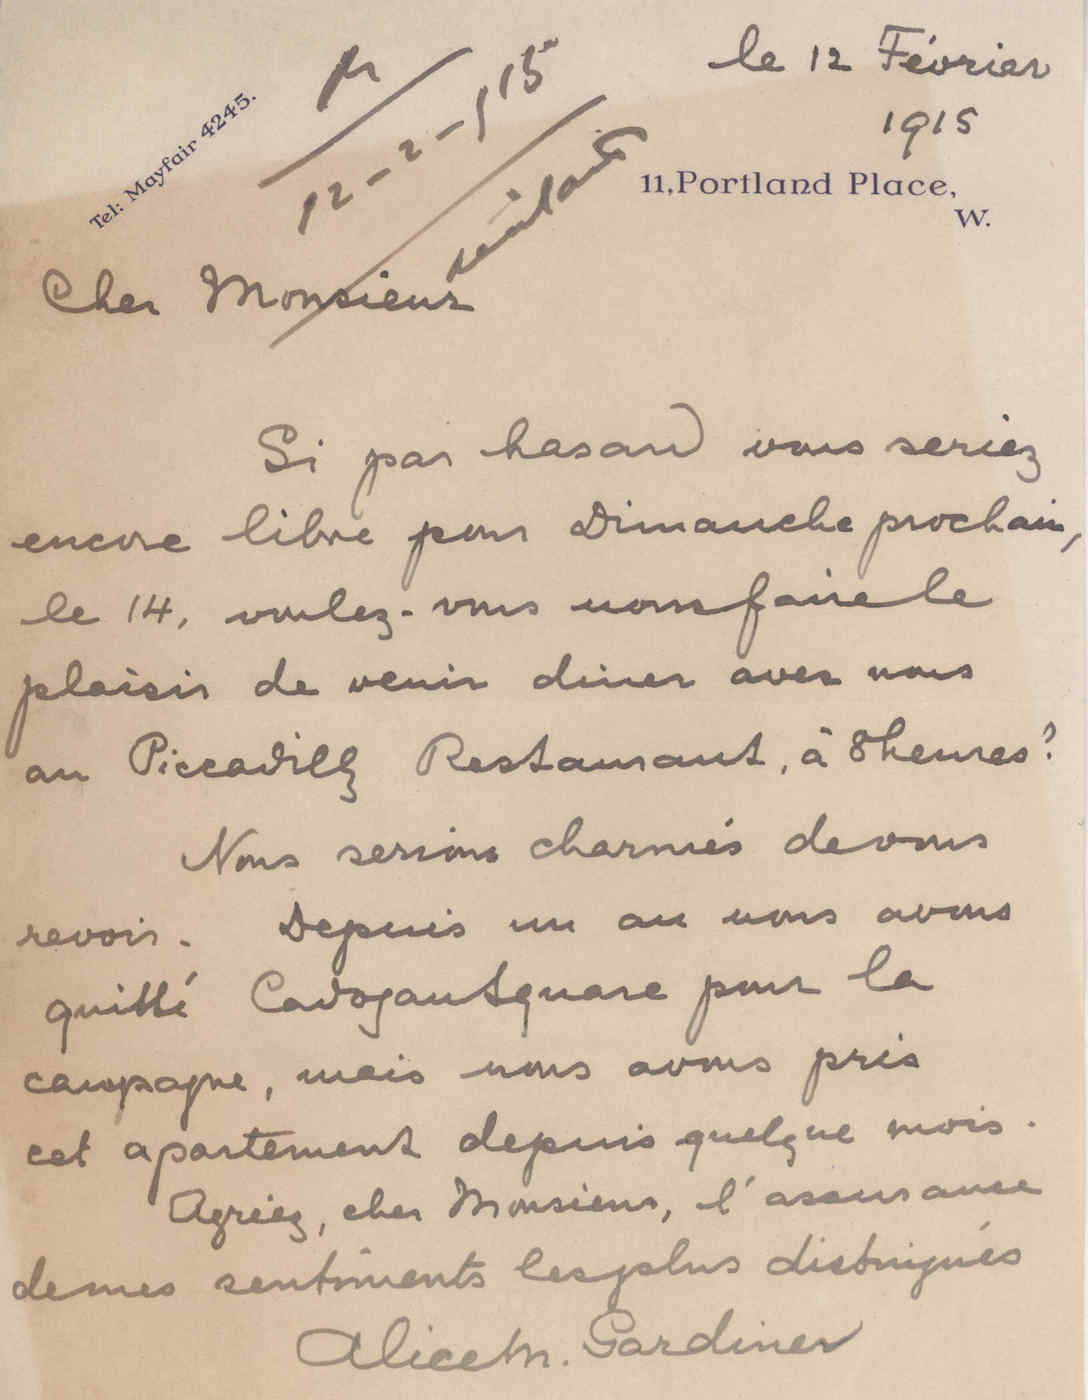 le 12 Février
1915
Tel: Mayfair 4245.
12-2-115
11, Portland Place,
W.
Cher Monsieur
Si par hasard vous seriez
encore libre pour Dimanche prochain,
le 14, voulez-vous nous faire le
plaisir de venir diner avec nous
au Piccadilly Restaurant, à 8 heures?
Nous serions charmés de vous
revoir. Depuis un an nous avons
quitté Cadogan Square pour la
campagne, mais nous avons pris
cet apartement depuis quelque mois.
Agriez, cher Monsieur, l'assurance
de mes sentiments les plus distingués
Alice M. Gardiner